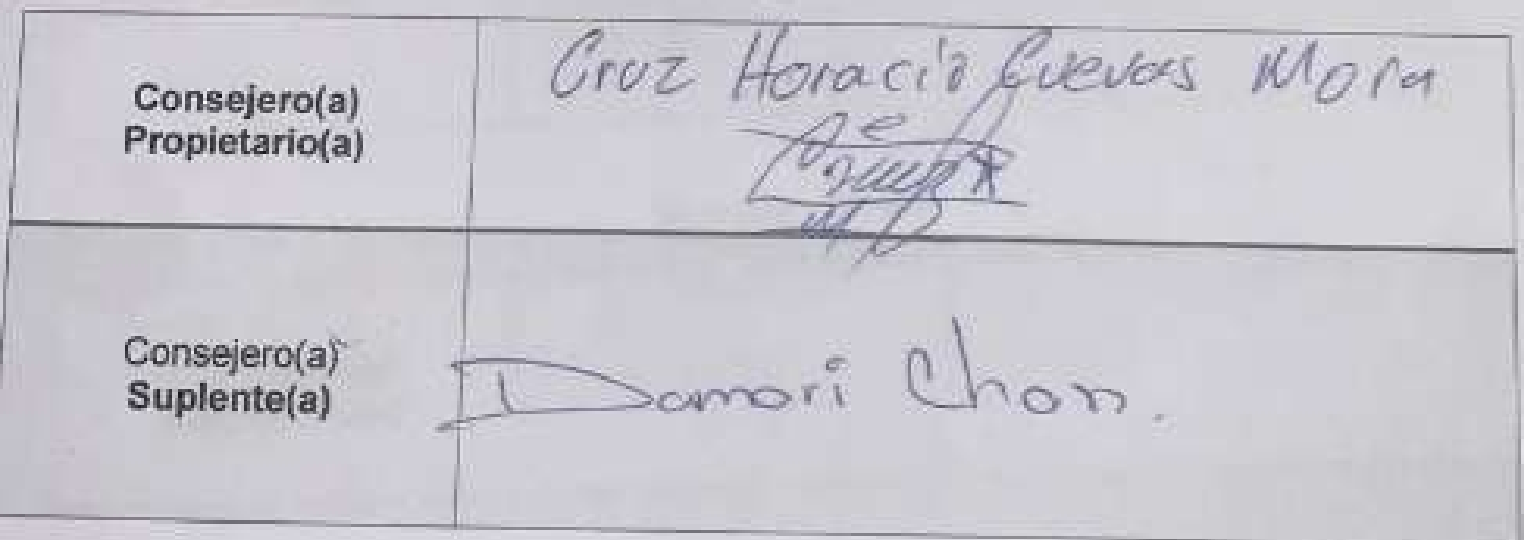 Consejero(a)
Propietario(a)
Cruz Horacio Cuevas Mora
Consejero(a)
Suplente(a)
Damari Chan.